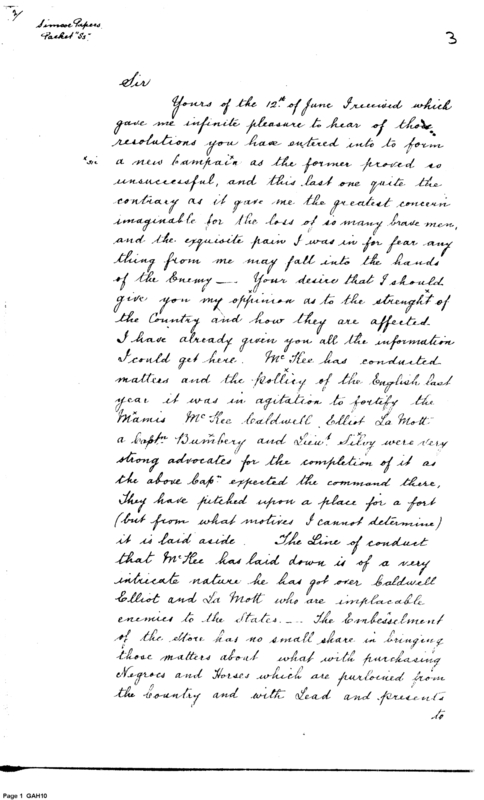 3/
Simcoe Papers.
Packet "S5"
3
Sir
Yours of the 12th of June I received which
gave me infinite pleasure to hear of those
resolutions you have entered into to form
"sic a new Campain as the former proved so
unsuccessful, and this last one quite the
contrary as it gave me the greatest concern
imaginable for the loss of so many brave men,
and the exquisite pain I was in for fear any
thing from me may fall into the hands
of the Enemy —. Your desire that I should
give you my oppinion as to the strenght of
the Country and how they are affected.
I have already given you all the information
I could get here. McKee has conducted
matters and the polliy of the English last
year it was in agitation to fortify the
Mamis McKee Caldwell, Elliot La Mott
a Captn Bumbery and Lieut Silvy were very
strong advocates for the completion of it as
the above Capn expected the command there,
They have pitched upon a place for a fort
(but from what motives I cannot determine)
it is laid aside. The Line of conduct
that McKee has laid down is of a very
intricate nature he has got over Caldwell
Elliot and La Mott who are implacable
enemies to the States.... The Embesselment
of the Store has no small share in bringing
those matters about what with purchasing
Negroes and Horses which are purloined from
the Country and with Lead and presents
to
Page 1 GAH10